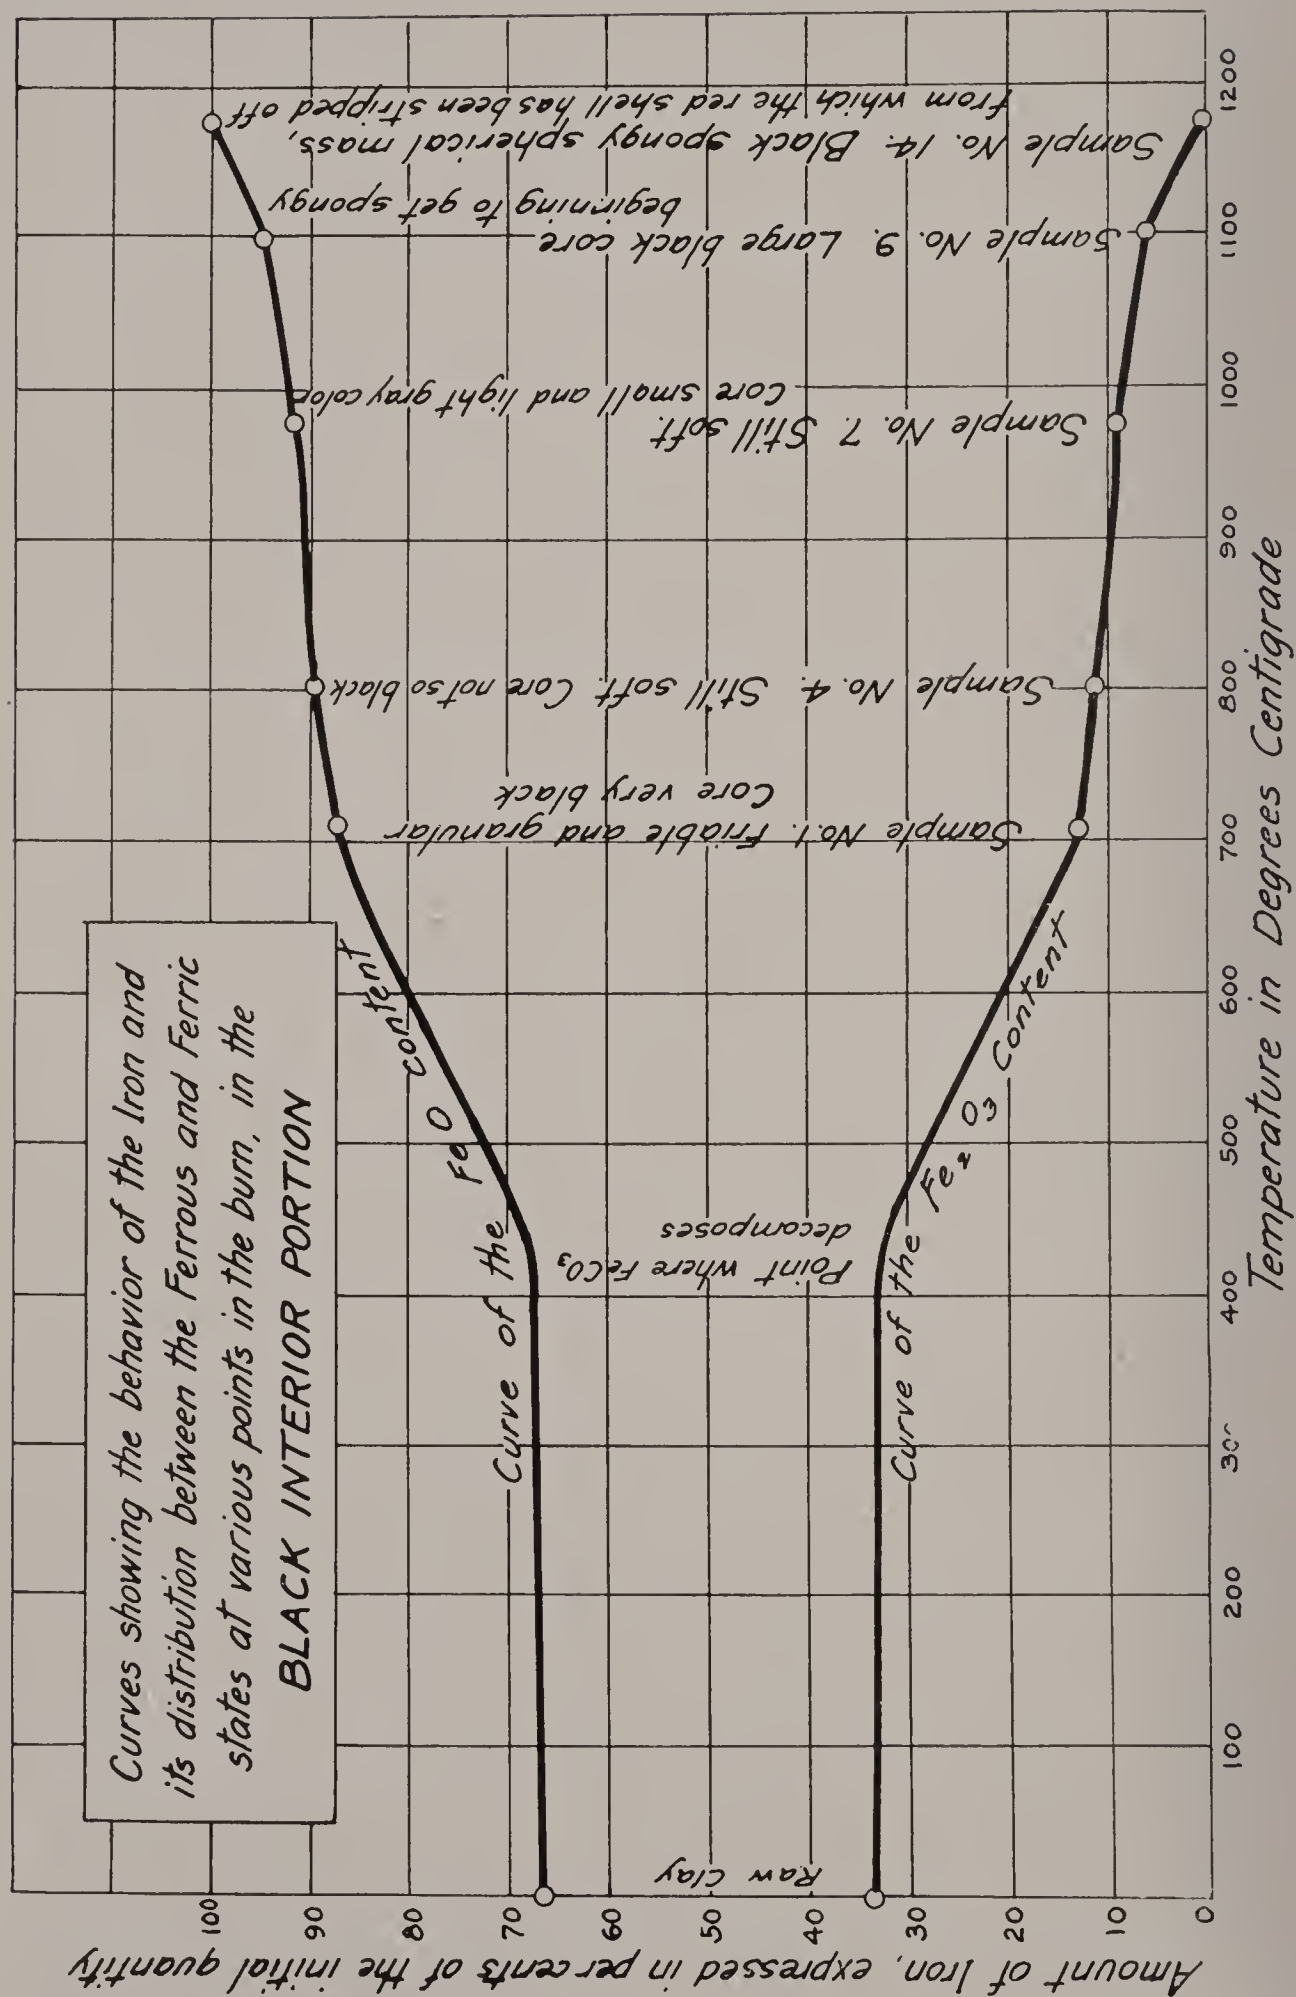 Curves showing the behavior of the Iron and
its distribution between the Ferrous and Ferric
states at various points in the burn, in the
BLACK INTERIOR PORTION
Amount of Iron, expressed in percents of the initial quantity
100
90
80
70
60
50
40
30
20
10
0
Curve of the FeO content
Curve of the Fe2O3 Content
Raw Clay
Point where FeCO3
decomposes
Sample No. 1. Friable and granular
Core very black
Sample No. 4. Still soft. Core not so black
Sample No. 7. Still soft.
Core small and light gray color
Sample No. 9. Large black core
beginning to get spongy
Sample No. 14. Black spongy spherical mass,
from which the red shell has been stripped off
100
200
300
400
500
600
700
800
900
1000
1100
1200
Temperature in Degrees Centigrade